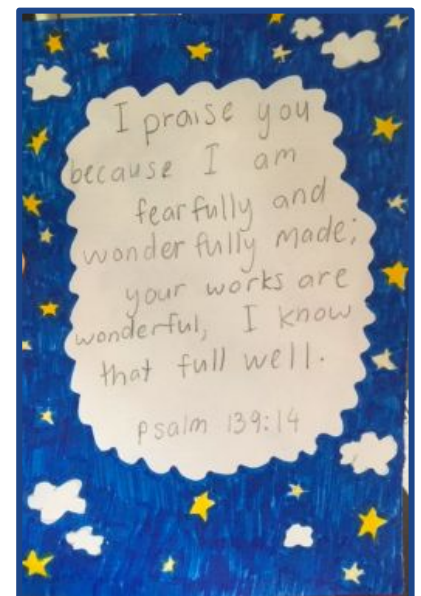 I praise you
because I am
fearfully and
wonderfully made;
your works are
wonderful, I know
that full well.
psalm 139:14